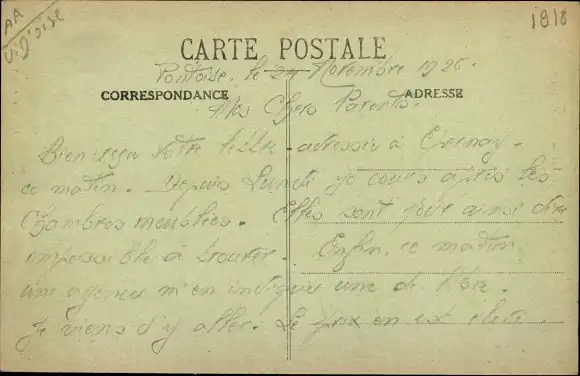 AA
V. d'oise
1918
CARTE POSTALE
Pontoise, le 24 Novembre 1926.
CORRESPONDANCE
ADRESSE
Mes Chers Parents.
Bien reçu votre lettre adressée à Epernay.
ce matin. Depuis Lundi je cours après les
Chambres meublées. Elles sont pour ainsi dire
impossible à trouver. Enfin, ce matin.
une agence m'en indique une de libre.
Je viens d'y aller. Le prix en est élevé.